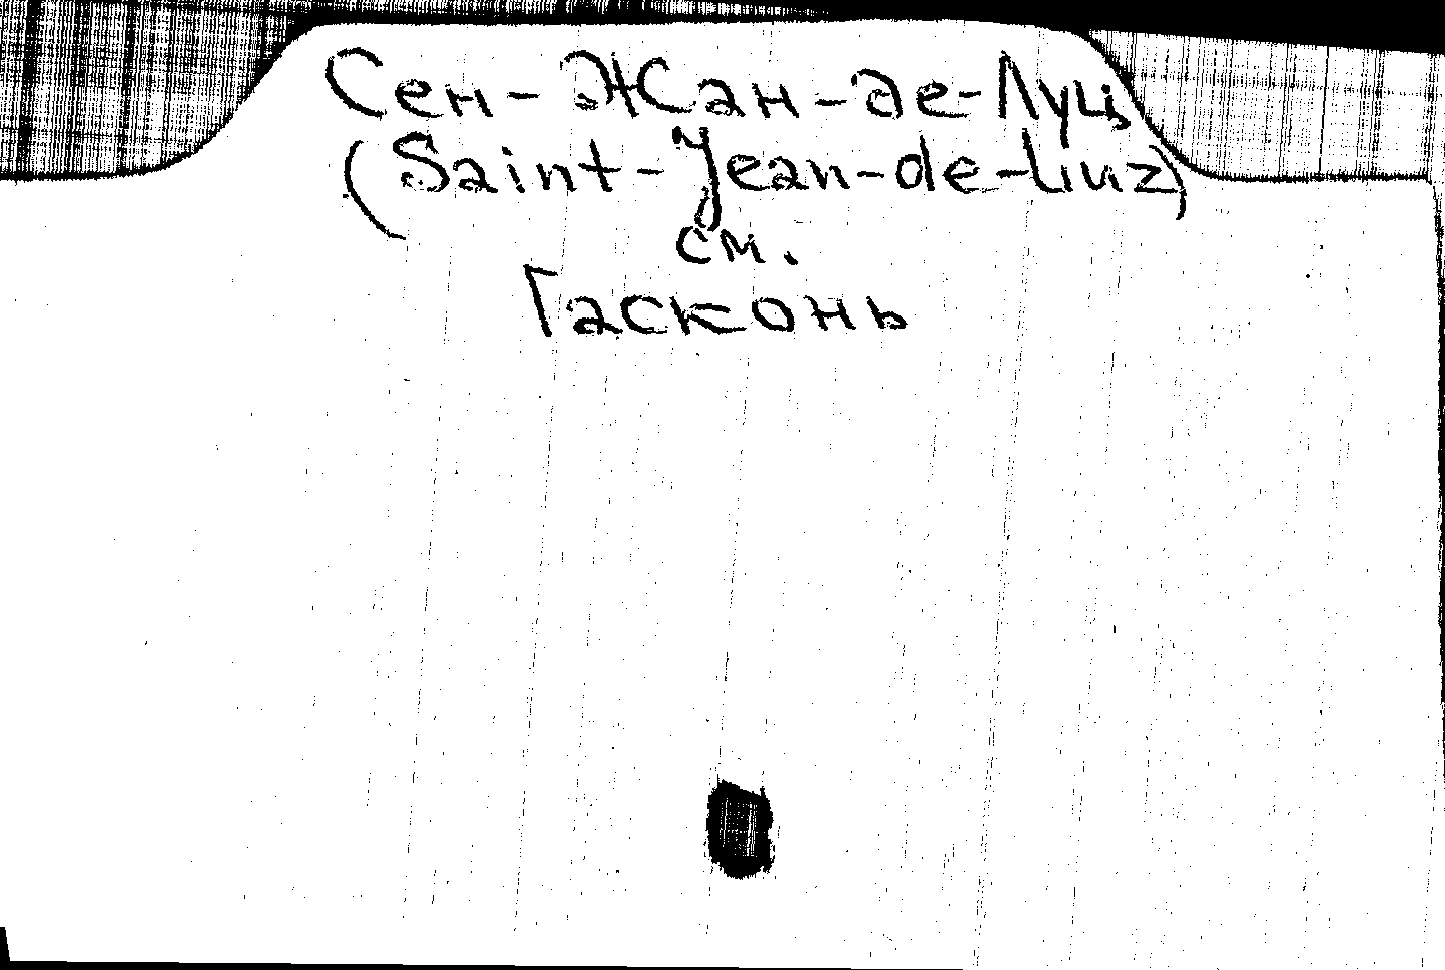 Сен-Жан-де-Луц
(Saint-Jean-de-Luz)
см.
Гасконь